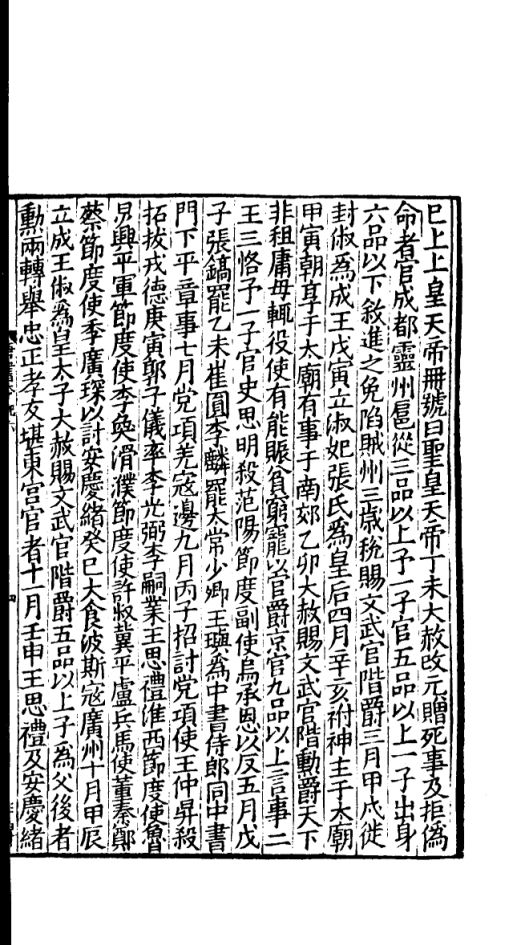 巳上上皇天帝冊號曰聖皇天帝丁未大赦改元贈死事及拒僞
命者官成都靈州扈從三品以上予一子官五品以上一子出身
六品以下敘進之免陷賊州三歲稅賜文武官階爵三月甲戌徙
封俶爲成王戊寅立淑妃張氏爲皇后四月辛亥祔神主于太廟
甲寅朝享于太廟有事于南郊乙卯大赦賜文武官階勳爵天下
非租庸毋輒役使有能賑貧窮寵以官爵京官九品以上言事二
王三恪予一子官史思明殺范陽節度副使烏承恩以反五月戊
子張鎬罷乙未崔圓李麟罷太常少卿王璵爲中書侍郎同中書
門下平章事七月党項羌寇邊九月丙子招討党項使王仲昇殺
拓拔戎德庚寅郭子儀率李光弼李嗣業王思禮淮西節度使魯
炅興平軍節度使李奐滑濮節度使許叔冀平盧兵馬使董秦鄭
蔡節度使季廣琛以討安慶緒癸巳大食波斯寇廣州十月甲辰
立成王俶爲皇太子大赦賜文武官階爵五品以上子爲父後者
勳兩轉舉忠正孝友堪東宮官者十一月壬申王思禮及安慶緒
四